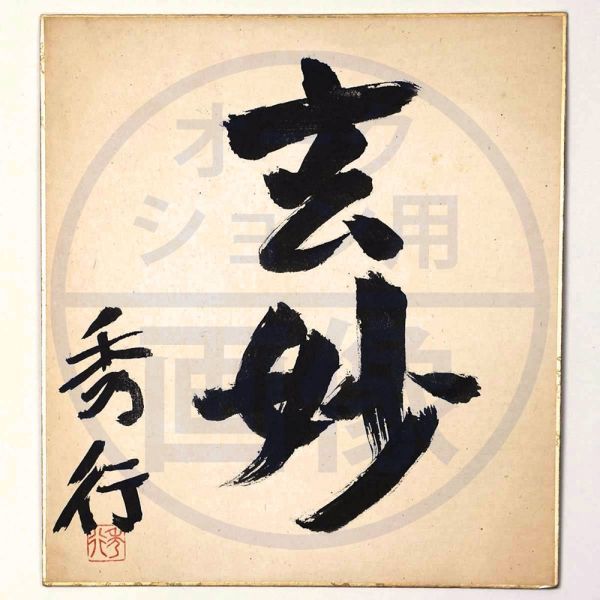 玄妙
秀行
秀行
オークション用
画像